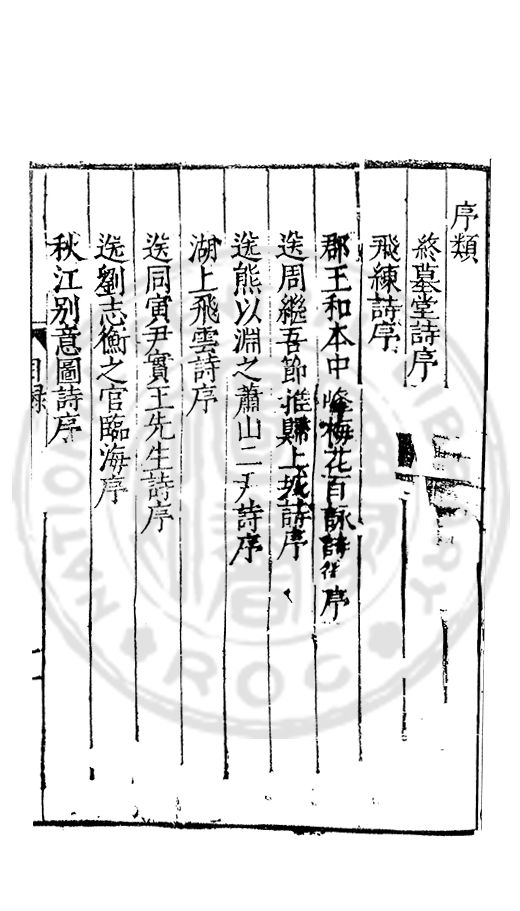 序類
終墓堂詩序
飛練詩序
郡王和本中峰梅花百詠詩序
送周繼吾節推歸上城詩序
送熊以淵之蕭山二尹詩序
湖上飛雲詩序
送同寅尹實王先生詩序
送劉志衡之官臨海序
秋江別意圖詩序
目録